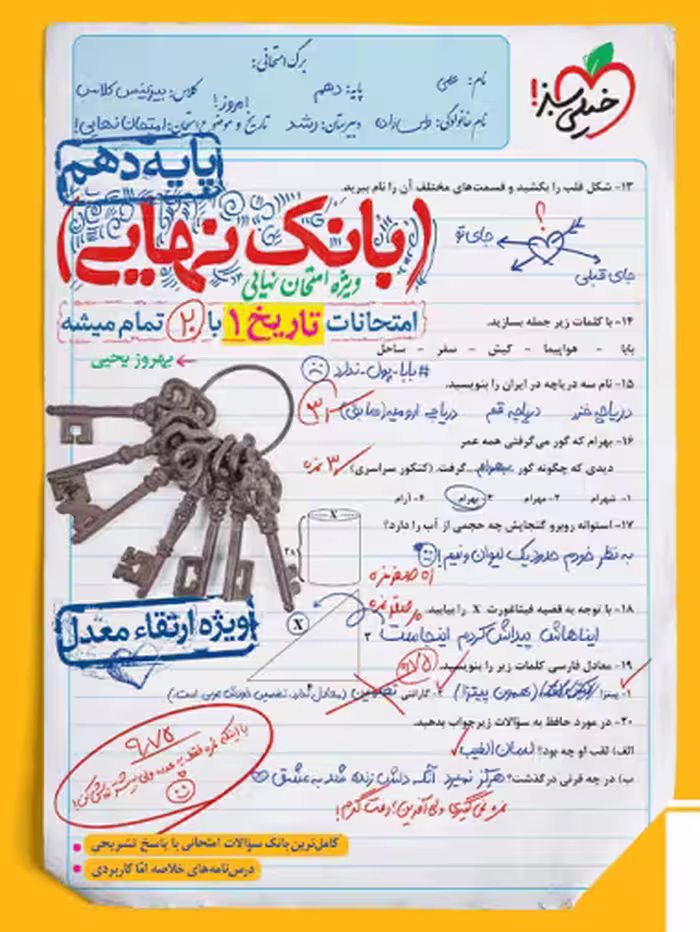 خیلی سبز!
برگ امتحانی:
نام:
پایه: دهم
کلاس: بیزینس کلاس
نام خانوادگی:
دبیرستان: رشد
امروز!
تاریخ و موضوع امتحان: امتحان نهایی!
پایه دهم
(بانک نهایی)
ویژه امتحان نهایی
امتحانات تاریخ ۱ با ۲۰ تمام میشه
بهروز یحیی
۱۳- شکل قلب را بکشید و قسمت‌های مختلف آن را نام ببرید.
؟
جای تو
جای قبلی
۱۴- با کلمات زیر جمله بسازید.
بابا - هواپیما - کیش - سفر - ساحل
#بابا-پول-ندارد
۱۵- نام سه دریاچه در ایران را بنویسید.
دریاچه خزر دریاچه قم دریاچه ارومیه (سابق)
۱۶- بهرام که گور می‌گرفتی همه عمر
دیدی که چگونه گور بهرام گرفت. (کنکور سراسری)
۳ نمره
۱- شهرام ۲- مهرام ۳- بهرام ۴- آرام
۱۷- استوانه روبرو گنجایش چه حجمی از آب را دارد؟
به نظر خودم حدود یک لیوان و نیم!
X
۱۸- با توجه به قضیه فیثاغورث X را بیابید.
X
۳
۴
ایناهاش پیداش کردم اینجاست
۱۹- معادل فارسی کلمات زیر را بنویسید.
۱- پیتزا (همون پیتزا) ۲- گارانتی تضمین (معادل ندارد. تضمین خودش عربی است.)
۲۰- در مورد حافظ به سؤالات زیر جواب بدهید.
الف) لقب او چه بود؟ لسان الغیب
ب) در چه قرنی درگذشت؟ هرگز نمیرد آنکه دلش زنده شد به عشق
ویژه ارتقاء معدل
۹/۷۵
کامل‌ترین بانک سؤالات امتحانی با پاسخ تشریحی
درس‌نامه‌های خلاصه امّا کاربردی